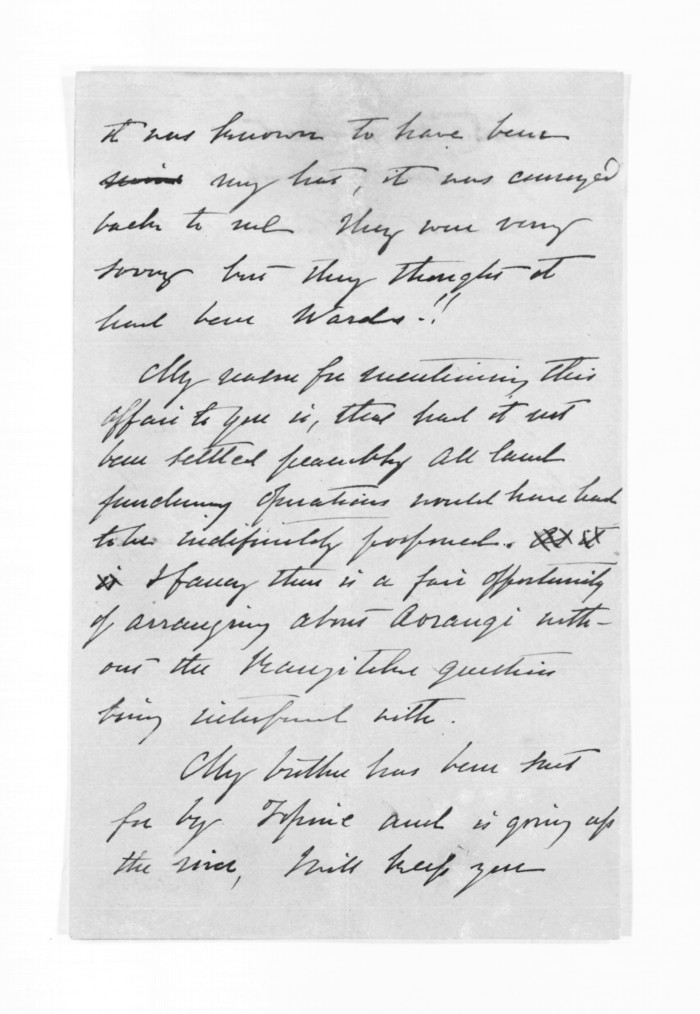 it was known to have been
my hat, it was conveyed
back to me They were very
sorry but they thought it
had been Wards.!!
My reason for mentioning this
affair to you is, that had it not
been settled peaceably all land
purchasing operations would have had
to be indefinitely postponed.
I fancy there is a fair opportunity
of arranging about Aorangi with-
out the Rangitikei question
being interfered with.
My brother has been sent
for by Topine and is going up
the river, I will keep you